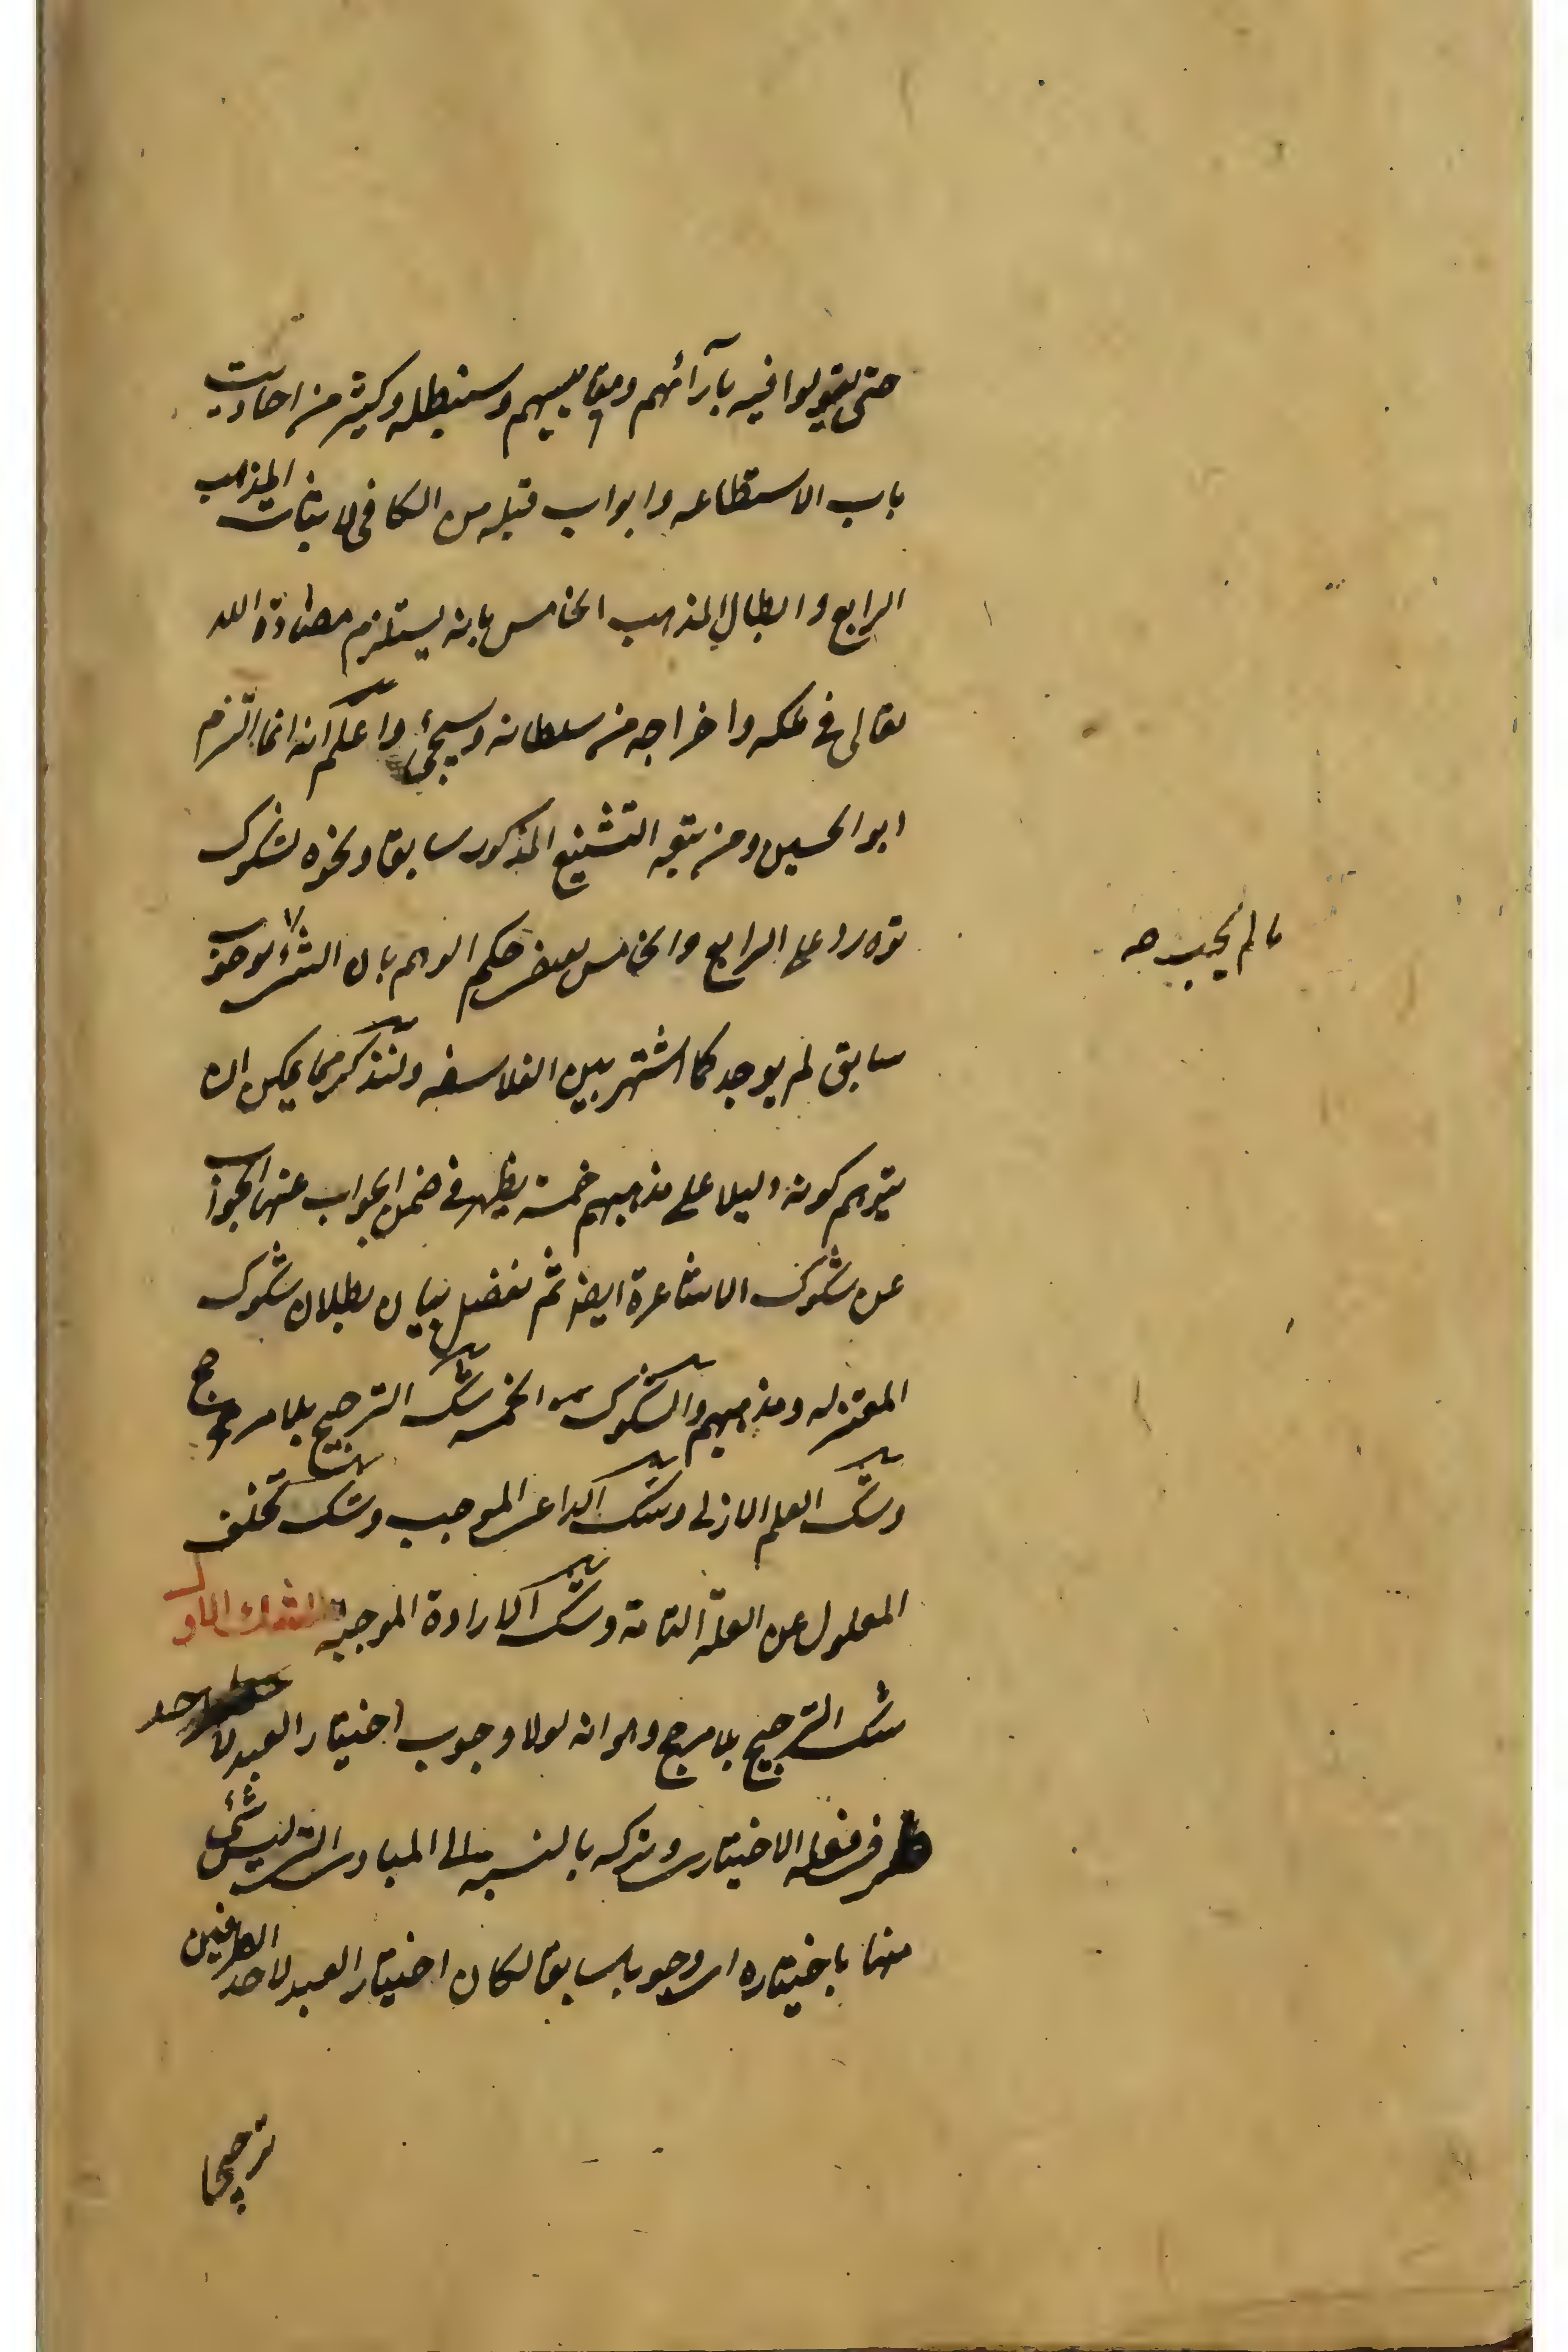 حتى يقولوا فيه بآرائهم ومقاييسهم وسنبطله وكثير من احاديث
باب الاستطاعه وابواب قبله من الكافى لاثبات المذهب
الرابع وابطال المذهب الخامس بانه يستلزم مضادة الله
تعالى فى ملكه واخراجه من سلطانه وسيجئ واعلم انه انما التزم
ابو الحسين ومن تبعه التشنيع المذكور سابقا ونحوه لشكوك
توردها على الرابع والخامس بعض حكم الوهم بان الشئ
ما لم يجب صه
سابق لم يوجد كما اشتهر بين الفلاسفه ولنذكر مما يمكن ان
يتوهم كونه دليلا على مذهبهم خمسة يظهر فى ضمن الجواب عنها الجواب
عن شكوك الاشاعرة ايضا ثم نفصل بيان بطلان شكوك
المعتزله ومذهبهم والشكوك الخمسه شك الترجيح بلا مرجح
وشك العلم الازلى وشك الداعى الموجب وشك تخلف
المعلول عن العلة التامة وشك الارادة الموجبة الشك الاول
شك الترجيح بلا مرجح وهو انه لولا وجوب اختيار العبد لاحد
طرفى فعله الاختيارى وتركه بالنسبه الى المبادى التى ليس شئ
منها باختياره اى وجوبا سابقا لكان اختيار العبد لاحد الطرفين
ترجيحا